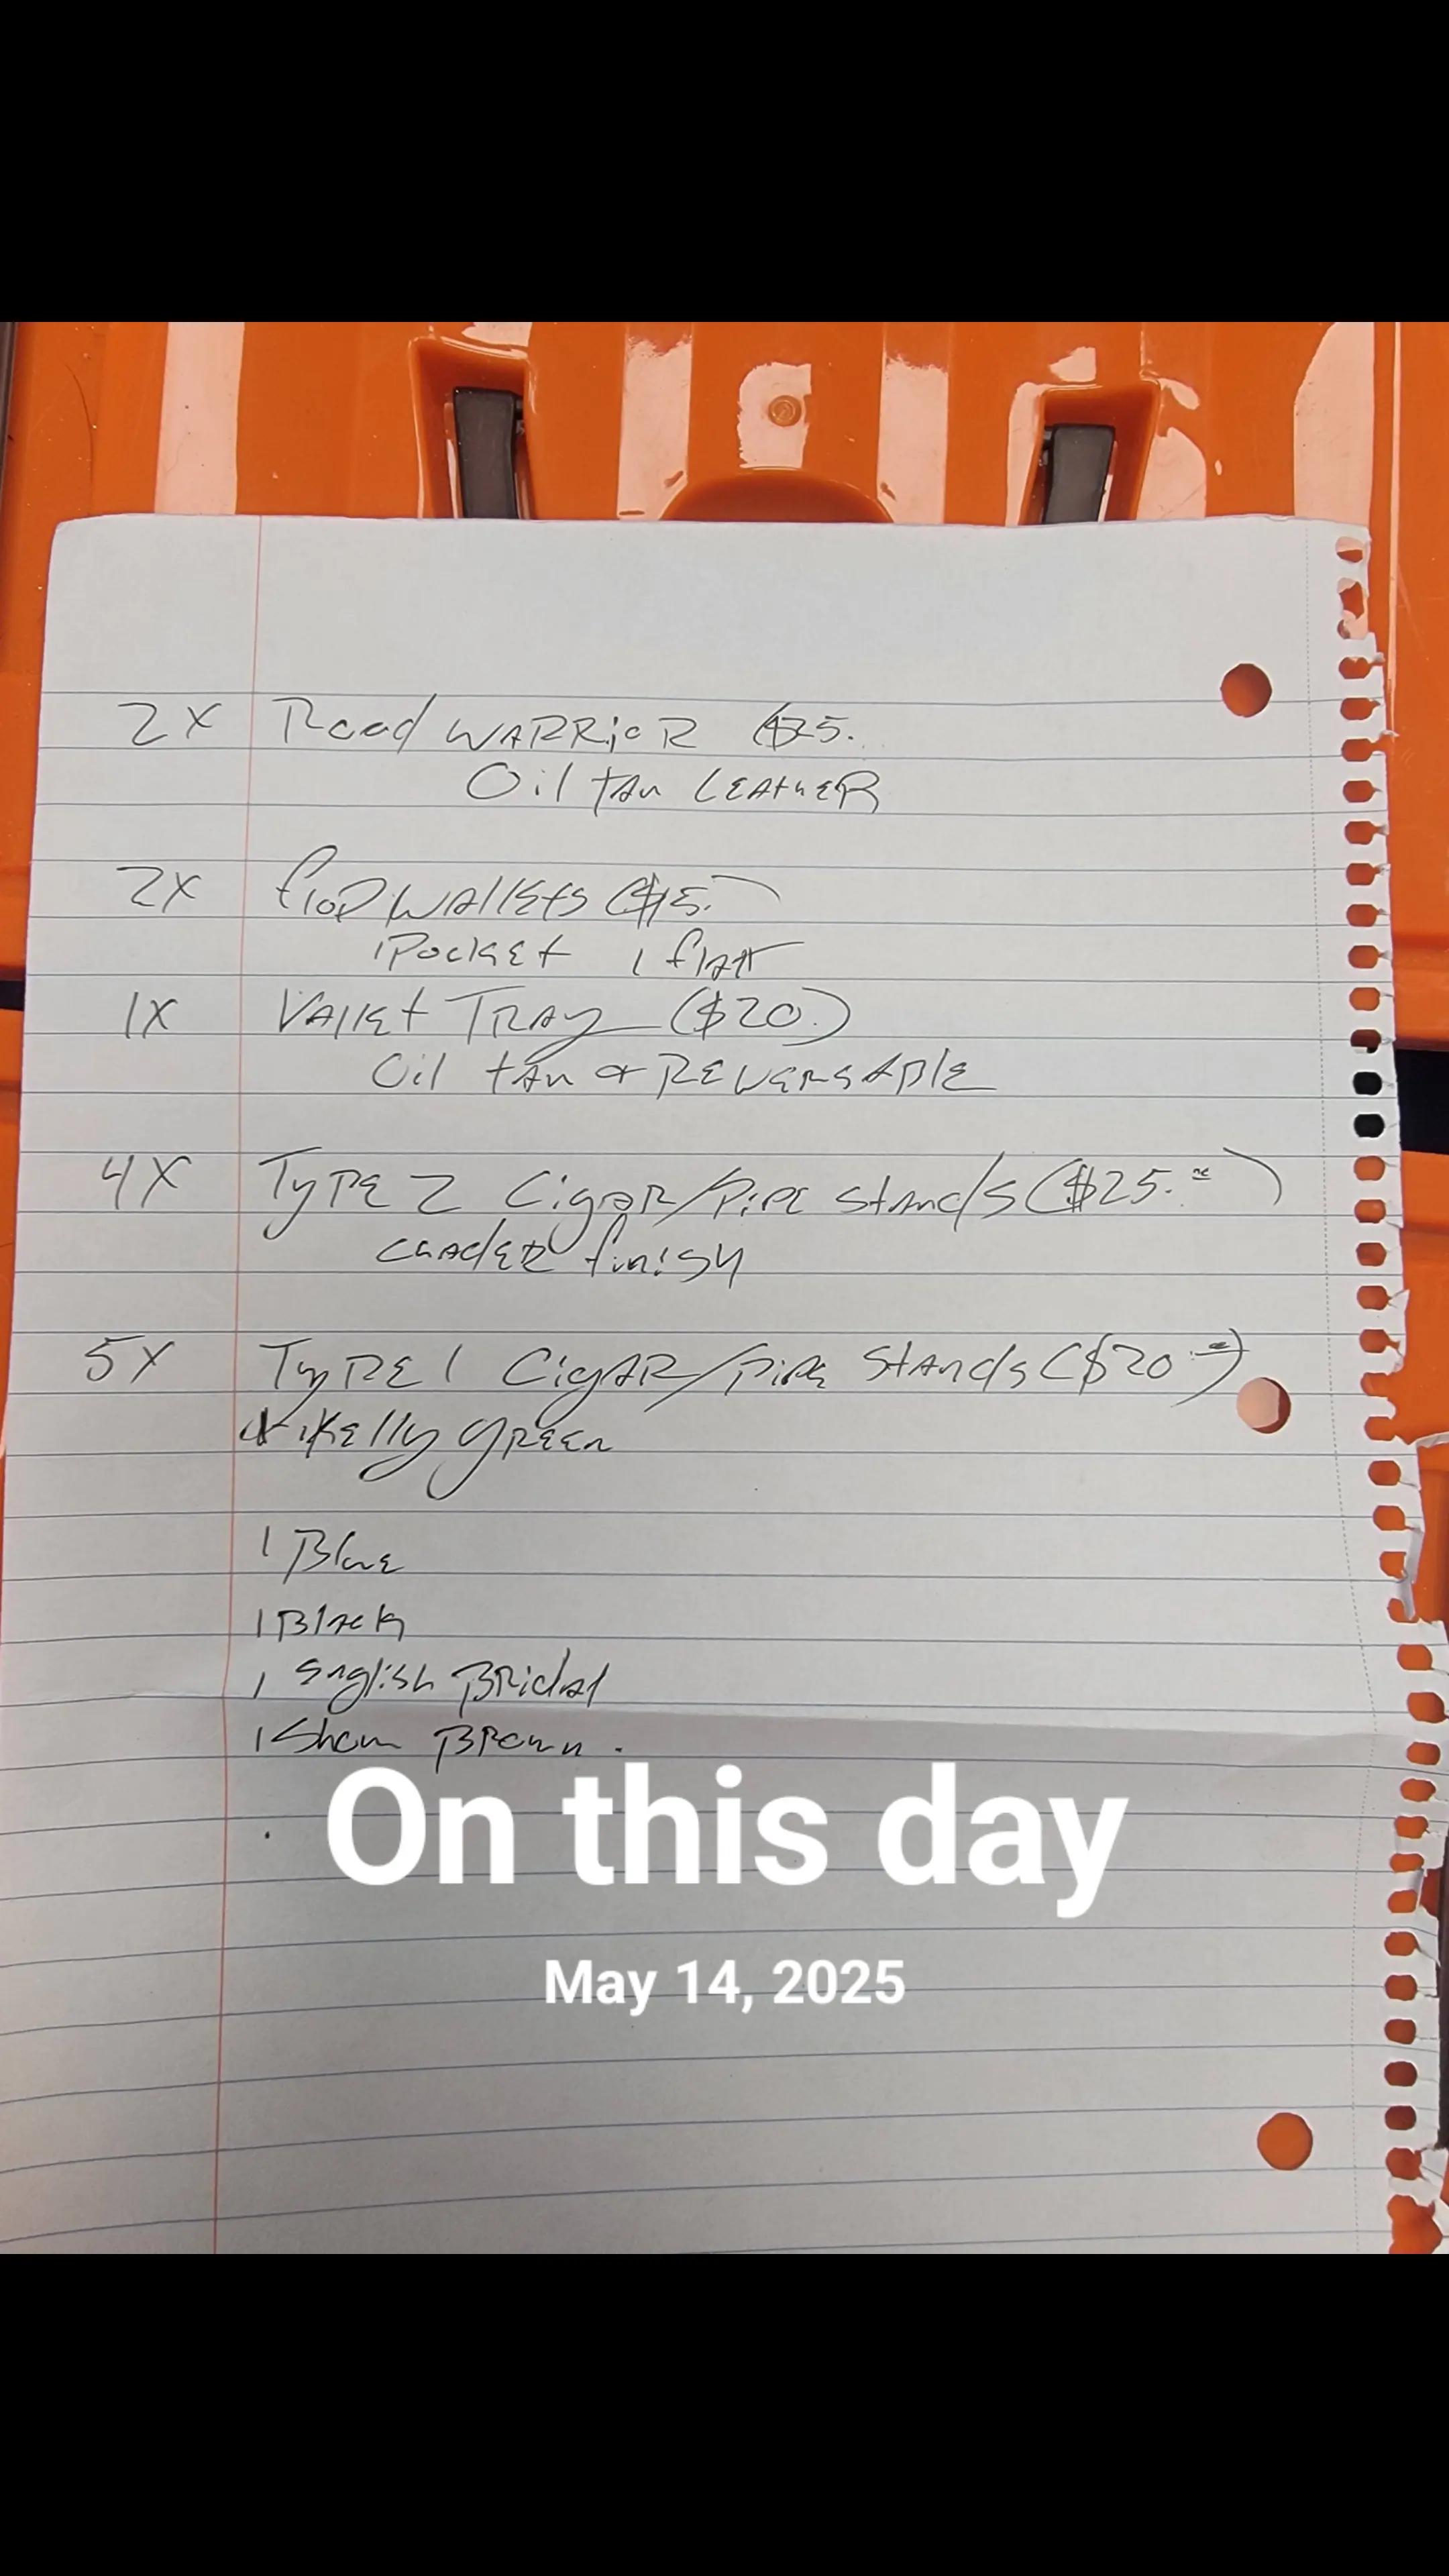 2X Road WARRioR ($25.
Oil tAn LEAthER
2X flop WAllEts ($15.)
1 PockEt 1 flAt
1X VAllEt TRAy ($20.)
Oil tAn & REVERSABlE
4X TyPE 2 CigAR/PiPE StAnds ($25.=)
finiSH
5X TyPE 1 CigAR/PiPE StAnds ($20.=)
KElly gREEn
1 BluE
1 BlAck
1 English BRidAl
1 BRown.
On this day
May 14, 2025